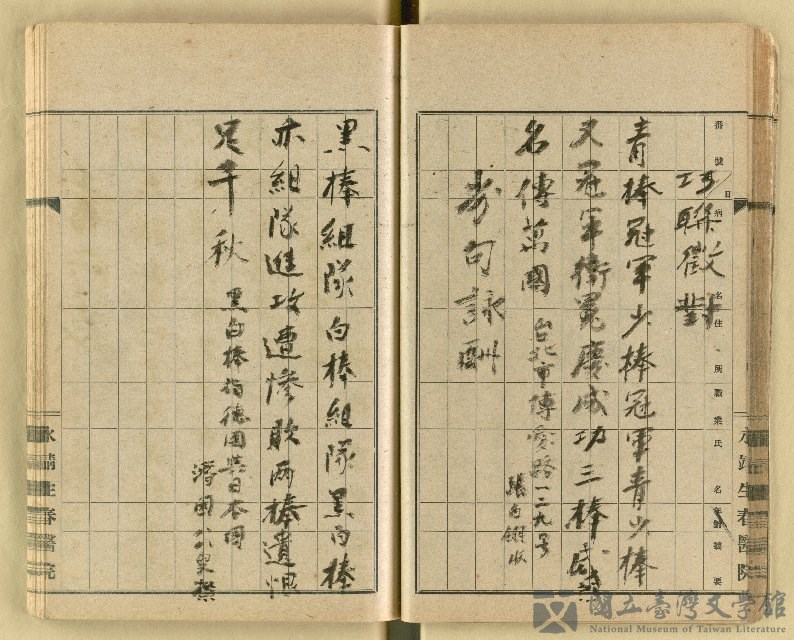 番號 日 病名 住所 職業 氏名 年齡 摘要
巧聯徵對
青棒冠軍少棒冠軍青少棒
又冠軍衛冕慶成功三棒威
名傳萬國 台北市博愛路一二九号
收
芳句詠酬
黑棒組隊白棒組隊黑白棒
亦組隊進攻遭慘敗兩棒遺恨
足千秋 黑白棒指德国與日本国
永靖生春醫院
永靖生春醫院
國立臺灣文學館
National Museum of Taiwan Literature